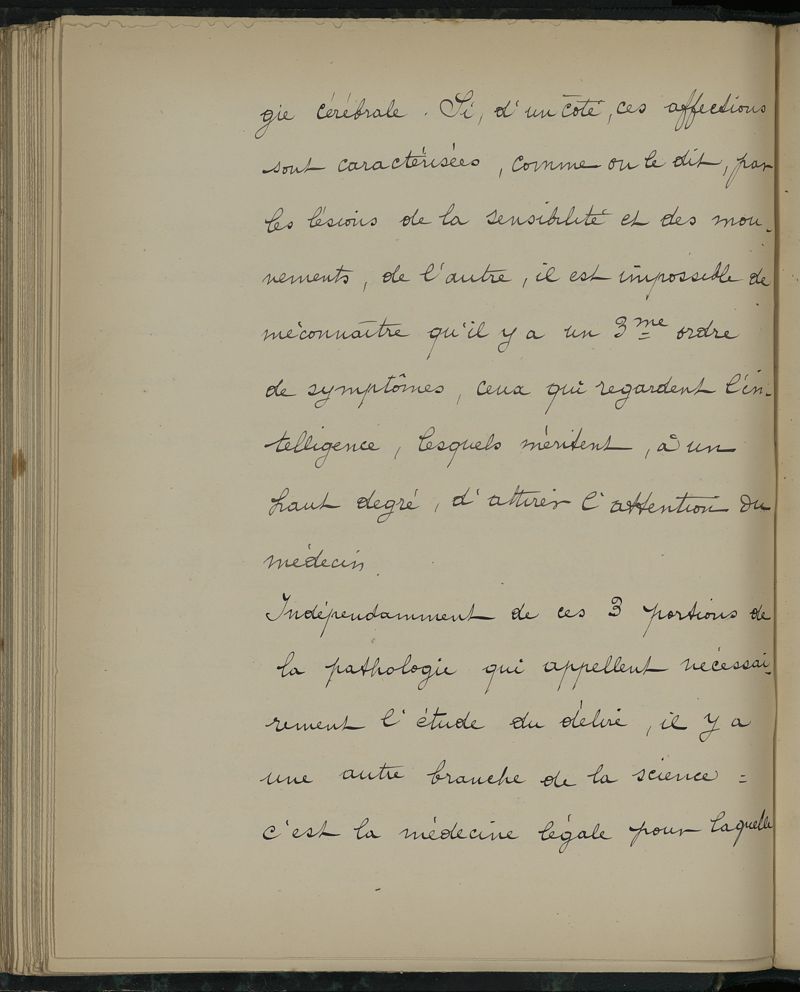 gie cérébrale. Si, d'un côté, ces affections
sont caractérisées, comme on le dit, par
les lésions de la sensibilité et des mou-
vements, de l'autre, il est impossible de
méconnaître qu'il y a un 3me ordre
de symptômes, ceux qui regardent l'in-
telligence, lesquels méritent, à un
haut degré, d'attirer l'attention du
médecin.
Indépendamment de ces 3 portions de
la pathologie qui appellent nécessai-
rement l'étude du délire, il y a
une autre branche de la science =
c'est la médecine légale pour laquelle